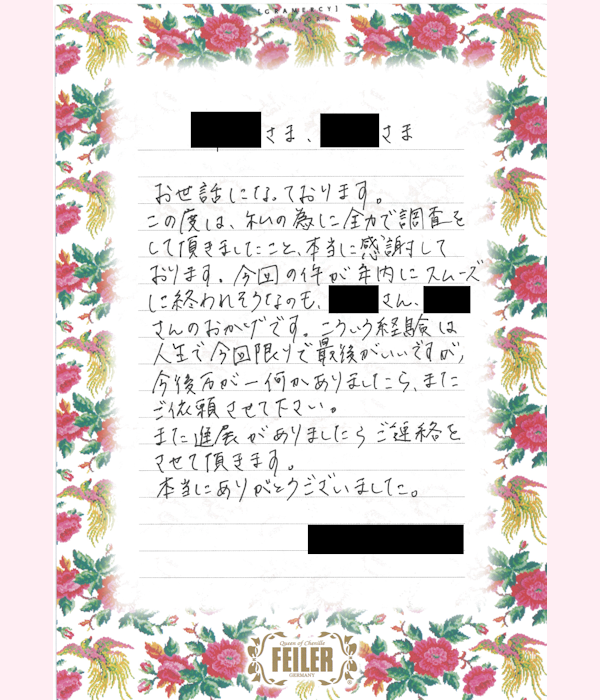 [GRAMERCY]
NEW YORK
さま、 さま
お世話になっております。
この度は、私の為に全力で調査を
して頂きましたこと、本当に感謝して
おります。今回の件が年内にスムーズ
に終われそうなのも、 さん、
さんのおかげです。こういう経験は
人生で今回限りで最後がいいですが、
今後万が一何かありましたら、また
ご依頼させて下さい。
また進展がありましたらご連絡を
させて頂きます。
本当にありがとうございました。
Queen of Chenille
FEILER
GERMANY